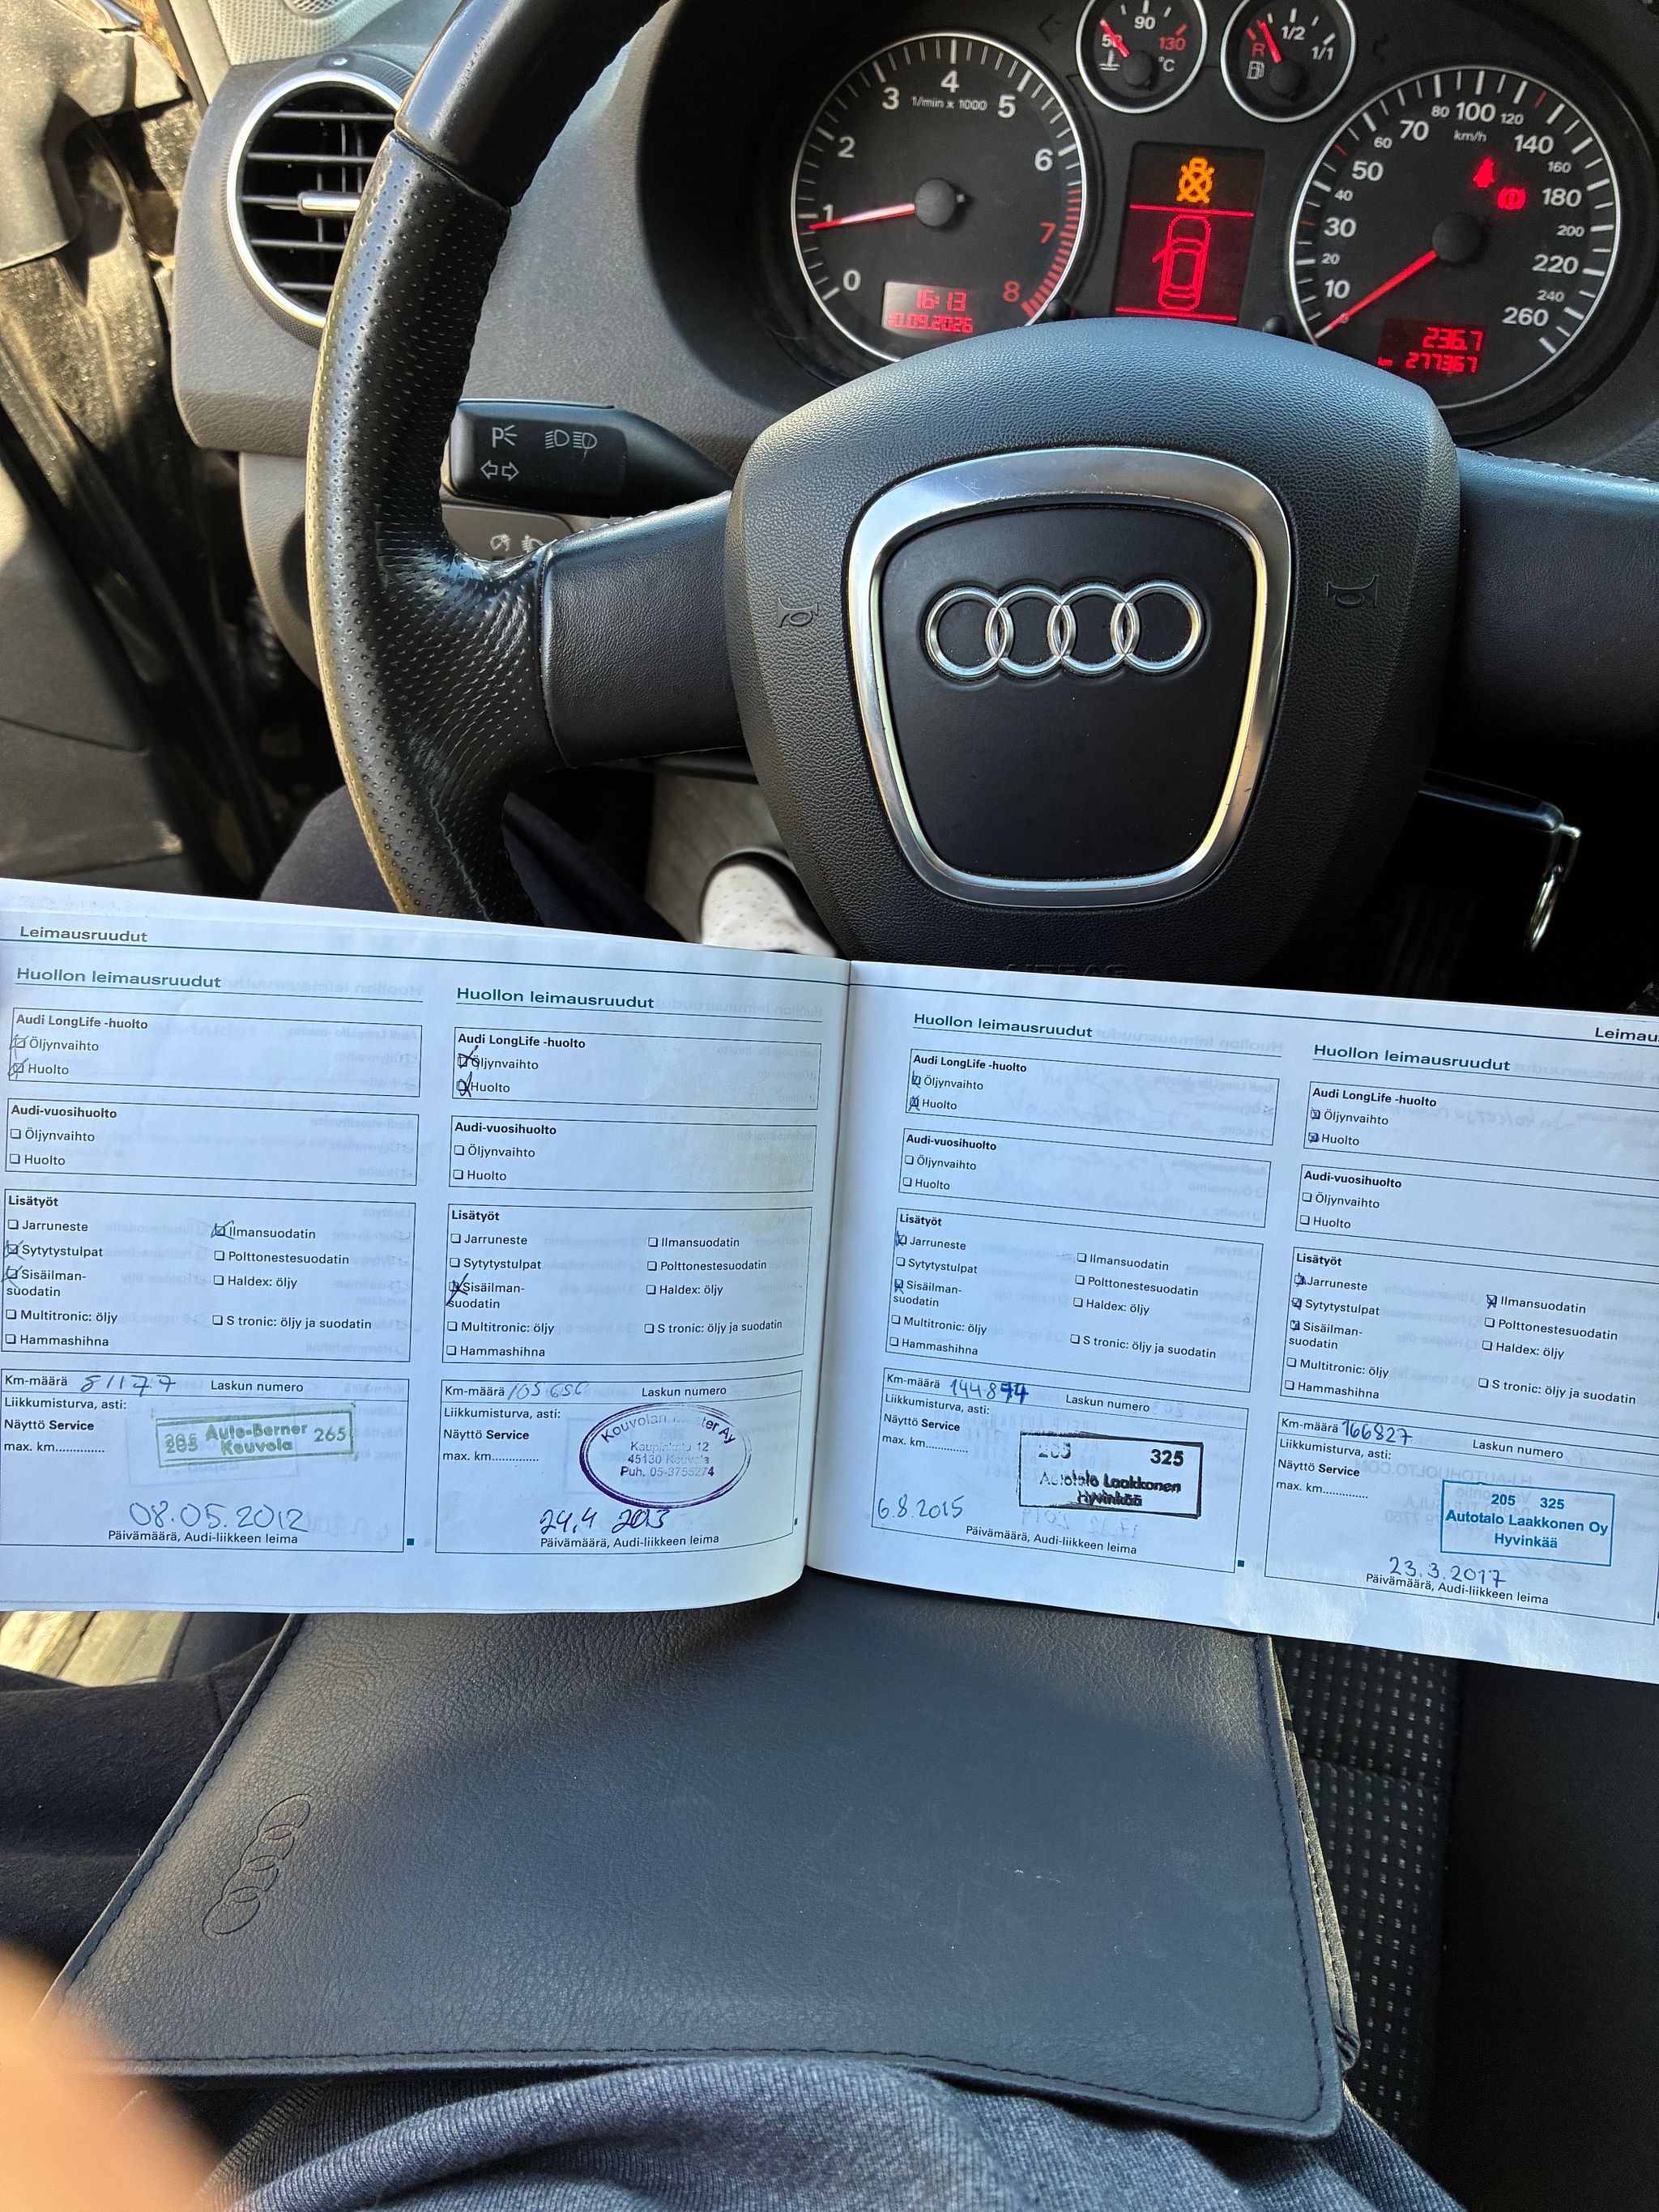 50
90
130
°C
R
1/2
1/1
0
1
2
3
4
5
6
7
8
1/min x 1000
16:13
0.09.2026
10
20
30
40
50
60
70
80
100
120
140
160
180
200
220
240
260
km/h
236.7
km 277367
P
Leimausruudut
Huollon leimausruudut
Audi LongLife -huolto
Öljynvaihto
Huolto
Audi-vuosihuolto
Öljynvaihto
Huolto
Lisätyöt
Jarruneste
Ilmansuodatin
Sytytystulpat
Polttonestesuodatin
Sisäilman-
suodatin
Haldex: öljy
Multitronic: öljy
S tronic: öljy ja suodatin
Hammashihna
Km-määrä 81177 Laskun numero
Liikkumisturva, asti:
Näyttö Service
max. km..............
265 Auto-Berner 265
Kouvola
08.05.2012
Päivämäärä, Audi-liikkeen leima
Huollon leimausruudut
Audi LongLife -huolto
Öljynvaihto
Huolto
Audi-vuosihuolto
Öljynvaihto
Huolto
Lisätyöt
Jarruneste
Ilmansuodatin
Sytytystulpat
Polttonestesuodatin
Sisäilman-
suodatin
Haldex: öljy
Multitronic: öljy
S tronic: öljy ja suodatin
Hammashihna
Km-määrä 105 656 Laskun numero
Liikkumisturva, asti:
Näyttö Service
max. km..............
Kouvolan ter Ay
12
45130 Kouvola
Puh. 05-3755274
24.4 2013
Päivämäärä, Audi-liikkeen leima
Leimaus
Huollon leimausruudut
Audi LongLife -huolto
Öljynvaihto
Huolto
Audi-vuosihuolto
Öljynvaihto
Huolto
Lisätyöt
Jarruneste
Ilmansuodatin
Sytytystulpat
Polttonestesuodatin
Sisäilman-
suodatin
Haldex: öljy
Multitronic: öljy
S tronic: öljy ja suodatin
Hammashihna
Km-määrä 144874 Laskun numero
Liikkumisturva, asti:
Näyttö Service
max. km..............
205 325
Autotalo Laakkonen
Hyvinkää
6.8.2015
Päivämäärä, Audi-liikkeen leima
Huollon leimausruudut
Audi LongLife -huolto
Öljynvaihto
Huolto
Audi-vuosihuolto
Öljynvaihto
Huolto
Lisätyöt
Jarruneste
Ilmansuodatin
Sytytystulpat
Polttonestesuodatin
Sisäilman-
suodatin
Haldex: öljy
Multitronic: öljy
S tronic: öljy ja suodatin
Hammashihna
Km-määrä 166827 Laskun numero
Liikkumisturva, asti:
Näyttö Service
max. km..............
205 325
Autotalo Laakkonen Oy
Hyvinkää
23.3.2017
Päivämäärä, Audi-liikkeen leima